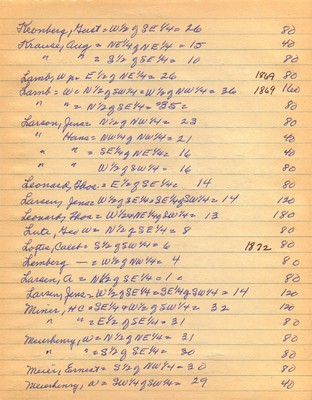 Kronberg, Gust = W½ of SE¼ = 26 80
Krause, Aug = NE¼ of NE¼ = 15 40
" " = S½ of SE¼ = 10 80
Lamb, Wm = E½ of NE¼ = 26 1869 80
Lamb = W = N½ of SW¼ = W½ of NW¼ = 36 1869 160
" " = N½ of SE¼ = 35 = 80
Larson, Jens = N½ of NW¼ = 23 80
" Hans = NW¼ of NW¼ = 21 40
" " = SE¼ of NE¼ = 16 40
" " W½ of SW¼ = 16 80
Leonard, Thos = E½ of SE¼ = 14 80
Larsen, Jens = W½ of SE¼ = SE¼ of SW¼ = 14 120
Leonard, Thos = W½ of NW¼ of SW¼ = 13 180
Lute, Geo W = N½ of SE¼ = 8 80
Loftis, Caleb = S½ of SW¼ = 6 1872 80
Lemberg — = W½ of NW¼ = 4 80
Larsen, A = N½ of SE¼ = 1 = 80
Larsen, Jens = W½ of SE¼ = SE¼ of SW¼ = 14 120
Miner, H C = SE¼ = W½ of SW¼ = 32 120
" " = E½ of SE¼ = 31 80
Meierhenry, W = N½ of NE¼ = 31 80
" " = S½ of SE¼ = 30 80
Meier, Ernest = S½ of NW¼ = 30 80
Meierhenry, W = SW¼ of SW¼ = 29 40